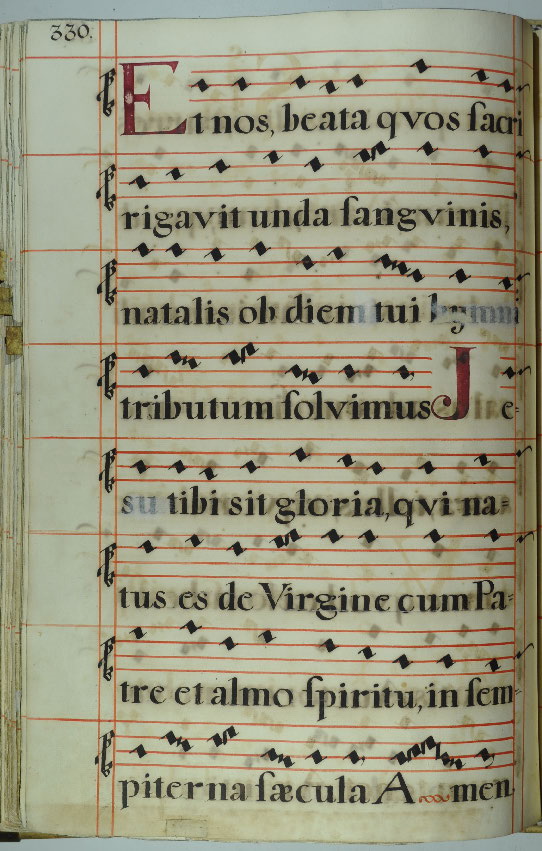 330.
Et nos, beata qvos sacri
rigavit unda sangvinis,
natalis ob diem tui hymni
tributum solvimus Je-
su tibi sit gloria, qvi na-
tus es de Virgine cum Pa-
tre et almo spiritu, in sem-
piterna sæcula Amen.